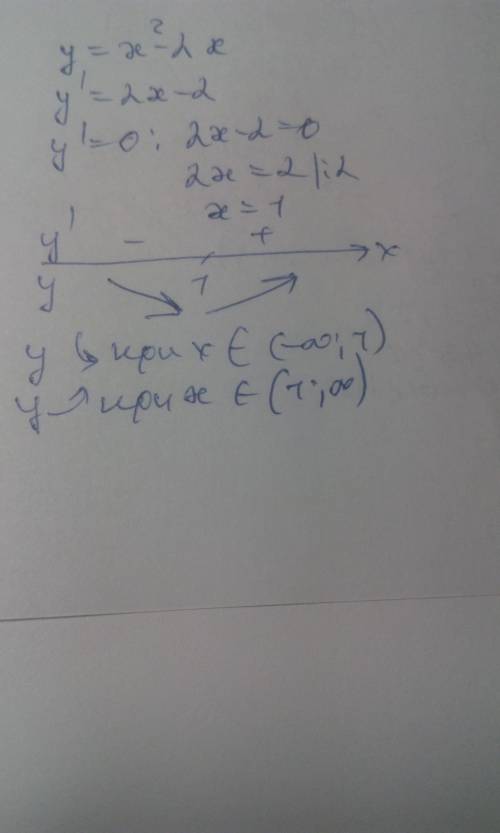 y = x² - 2x
y' = 2x - 2
y' = 0 : 2x - 2 = 0
2x = 2 | : 2
x = 1
y' - + x
y ↘ 1 ↗
y ↘ при x ∈ (-∞; 1)
y ↗ при x ∈ (1; ∞)